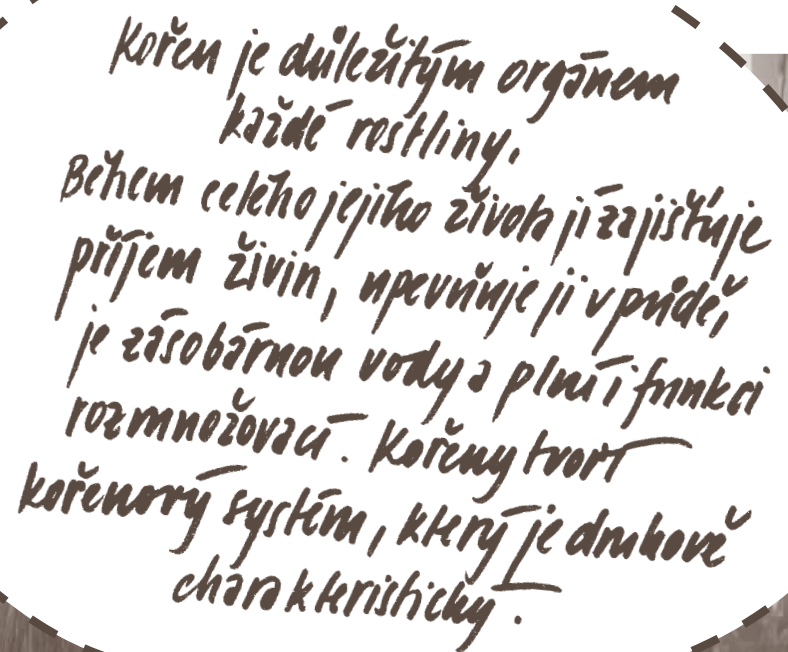 Kořen je důležitým orgánem
každé rostliny.
Během celého jejího života jí zajišťuje
příjem živin, upevňuje ji v půdě,
je zásobárnou vody a plní i funkci
rozmnožovací. Kořeny tvoří
kořenový systém, který je druhově
charakteristický.